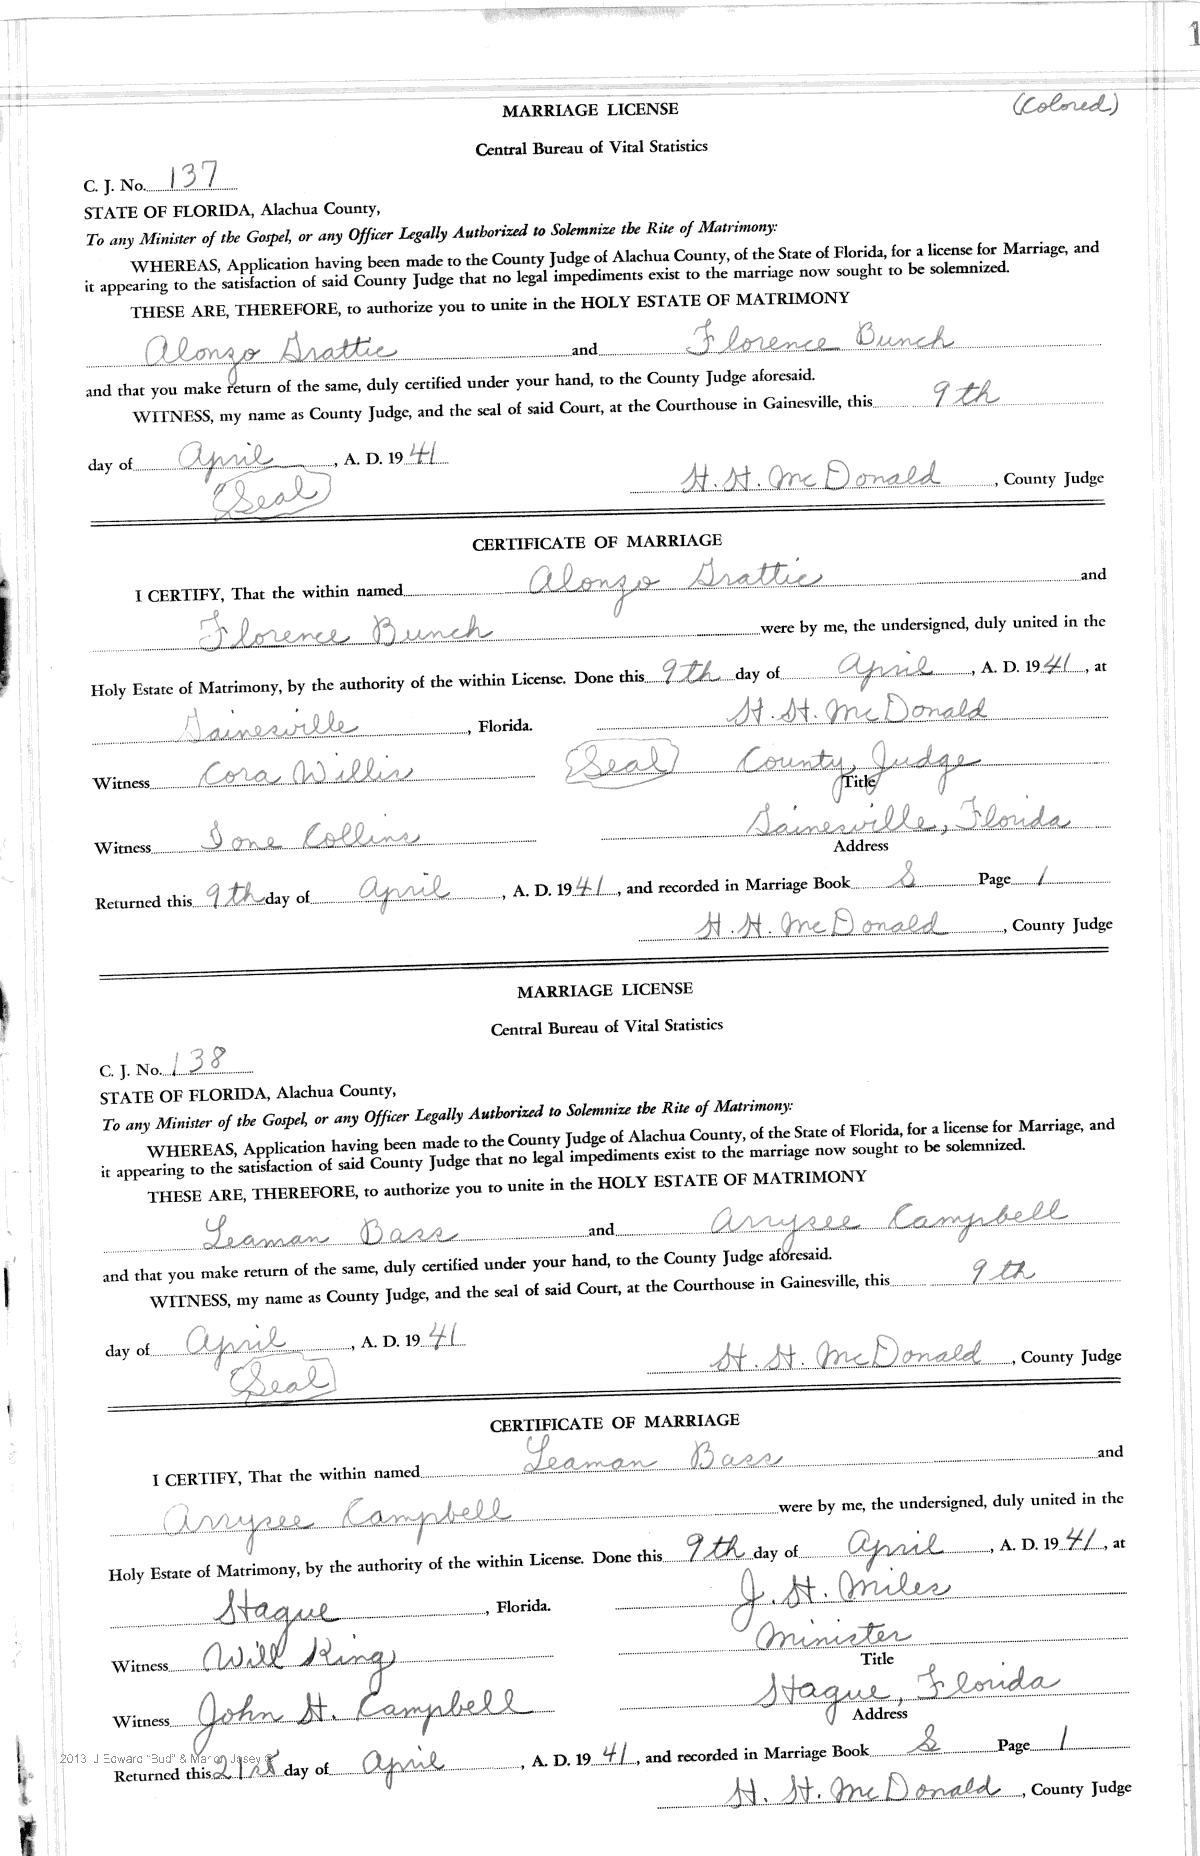 1
(Colored)
MARRIAGE LICENSE
Central Bureau of Vital Statistics
C. J. No. 137
STATE OF FLORIDA, Alachua County,
To any Minister of the Gospel, or any Officer Legally Authorized to Solemnize the Rite of Matrimony:
WHEREAS, Application having been made to the County Judge of Alachua County, of the State of Florida, for a license for Marriage, and
it appearing to the satisfaction of said County Judge that no legal impediments exist to the marriage now sought to be solemnized.
THESE ARE, THEREFORE, to authorize you to unite in the HOLY ESTATE OF MATRIMONY
Alonzo Grattic and Florence Bunch
and that you make return of the same, duly certified under your hand, to the County Judge aforesaid.
WITNESS, my name as County Judge, and the seal of said Court, at the Courthouse in Gainesville, this 9th
day of April, A. D. 1941
(Seal) H. H. McDonald, County Judge
CERTIFICATE OF MARRIAGE
I CERTIFY, That the within named Alonzo Grattic and
Florence Bunch were by me, the undersigned, duly united in the
Holy Estate of Matrimony, by the authority of the within License. Done this 9th day of April, A. D. 1941, at
Gainesville, Florida. H. H. McDonald
Witness Cora Willis (Seal) County Judge
Title
Witness Ione Collins Gainesville, Florida
Address
Returned this 9th day of April, A. D. 1941, and recorded in Marriage Book S Page 1
H. H. McDonald, County Judge
MARRIAGE LICENSE
Central Bureau of Vital Statistics
C. J. No. 138
STATE OF FLORIDA, Alachua County,
To any Minister of the Gospel, or any Officer Legally Authorized to Solemnize the Rite of Matrimony:
WHEREAS, Application having been made to the County Judge of Alachua County, of the State of Florida, for a license for Marriage, and
it appearing to the satisfaction of said County Judge that no legal impediments exist to the marriage now sought to be solemnized.
THESE ARE, THEREFORE, to authorize you to unite in the HOLY ESTATE OF MATRIMONY
Leaman Bass and Arrysee Campbell
and that you make return of the same, duly certified under your hand, to the County Judge aforesaid.
WITNESS, my name as County Judge, and the seal of said Court, at the Courthouse in Gainesville, this 9th
day of April, A. D. 1941
(Seal) H. H. McDonald, County Judge
CERTIFICATE OF MARRIAGE
I CERTIFY, That the within named Leaman Bass and
Arrysee Campbell were by me, the undersigned, duly united in the
Holy Estate of Matrimony, by the authority of the within License. Done this 9th day of April, A. D. 1941, at
Hague, Florida. J. H. Miles
Witness Will King Minister
Title
Witness John H. Campbell Hague, Florida
Address
2013 J Edward "Bud" & Marion
Returned this 21st day of April, A. D. 1941, and recorded in Marriage Book S Page 1
H. H. McDonald, County Judge